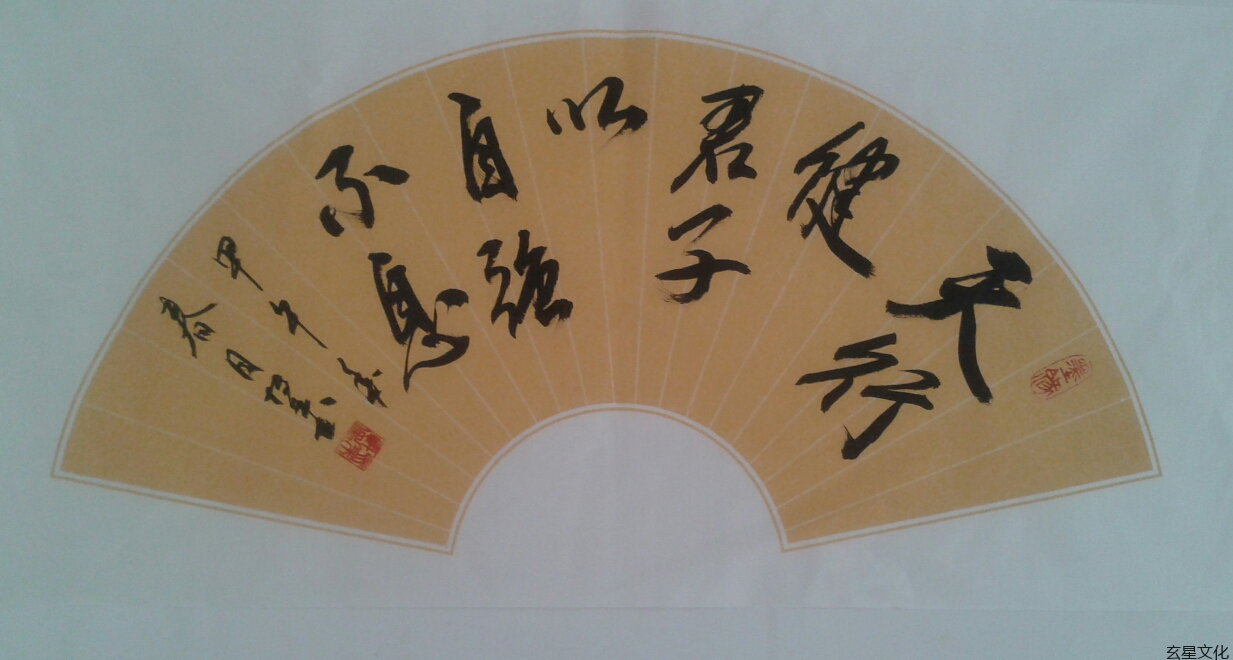 天行
健
君子
以
自强
不息
甲午年
春月
玄星文化